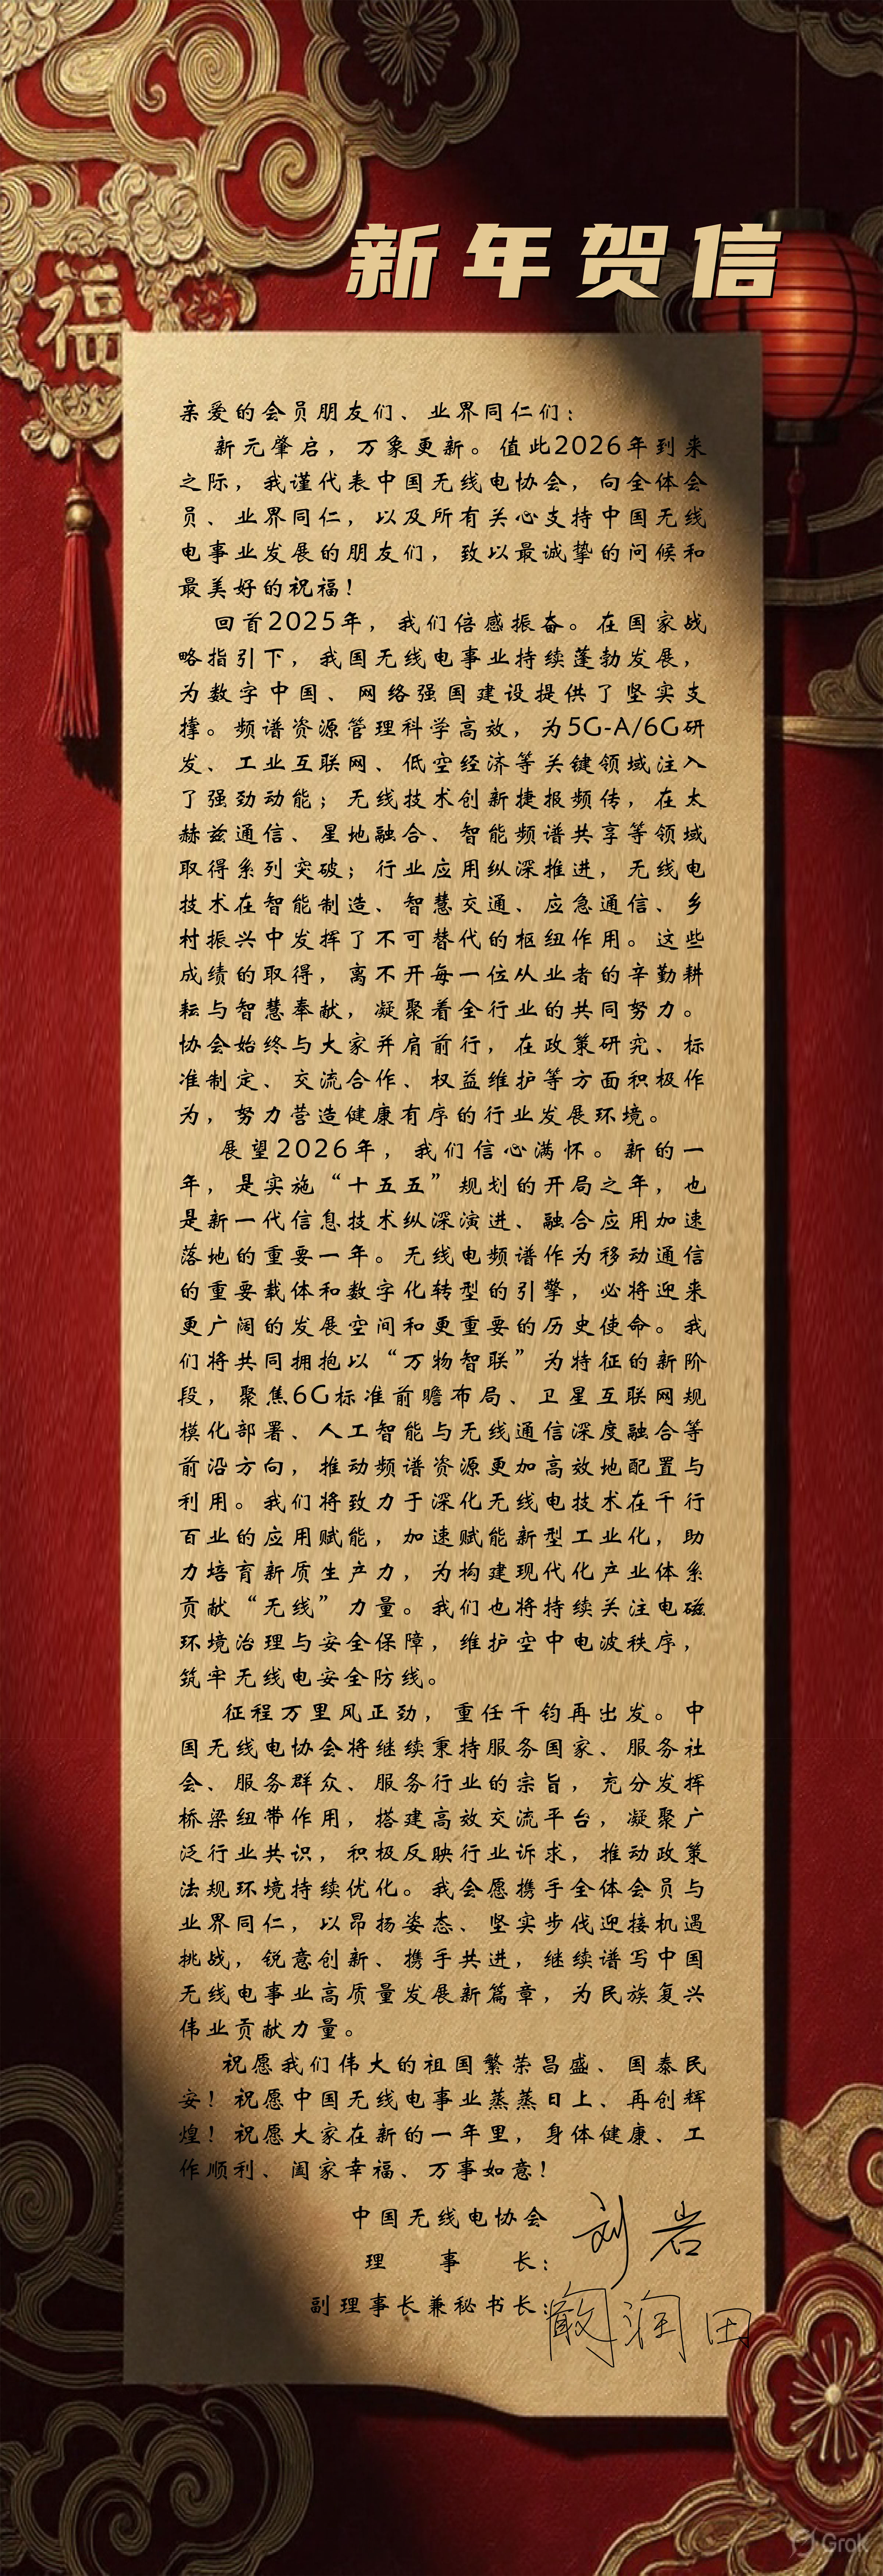 新年贺信
福
亲爱的会员朋友们、业界同仁们：
新元肇启，万象更新。值此2026年到来
之际，我谨代表中国无线电协会，向全体会
员、业界同仁，以及所有关心支持中国无线
电事业发展的朋友们，致以最诚挚的问候和
最美好的祝福！
回首2025年，我们倍感振奋。在国家战
略指引下，我国无线电事业持续蓬勃发展，
为数字中国、网络强国建设提供了坚实支
撑。频谱资源管理科学高效，为5G-A/6G研
发、工业互联网、低空经济等关键领域注入
了强劲动能；无线技术创新捷报频传，在太
赫兹通信、星地融合、智能频谱共享等领域
取得系列突破；行业应用纵深推进，无线电
技术在智能制造、智慧交通、应急通信、乡
村振兴中发挥了不可替代的枢纽作用。这些
成绩的取得，离不开每一位从业者的辛勤耕
耘与智慧奉献，凝聚着全行业的共同努力。
协会始终与大家并肩前行，在政策研究、标
准制定、交流合作、权益维护等方面积极作
为，努力营造健康有序的行业发展环境。
展望2026年，我们信心满怀。新的一
年，是实施“十五五”规划的开局之年，也
是新一代信息技术纵深演进、融合应用加速
落地的重要一年。无线电频谱作为移动通信
的重要载体和数字化转型的引擎，必将迎来
更广阔的发展空间和更重要的历史使命。我
们将共同拥抱以“万物智联”为特征的新阶
段，聚焦6G标准前瞻布局、卫星互联网规
模化部署、人工智能与无线通信深度融合等
前沿方向，推动频谱资源更加高效地配置与
利用。我们将致力于深化无线电技术在千行
百业的应用赋能，加速赋能新型工业化，助
力培育新质生产力，为构建现代化产业体系
贡献“无线”力量。我们也将持续关注电磁
环境治理与安全保障，维护空中电波秩序，
筑牢无线电安全防线。
征程万里风正劲，重任千钧再出发。中
国无线电协会将继续秉持服务国家、服务社
会、服务群众、服务行业的宗旨，充分发挥
桥梁纽带作用，搭建高效交流平台，凝聚广
泛行业共识，积极反映行业诉求，推动政策
法规环境持续优化。我会愿携手全体会员与
业界同仁，以昂扬姿态、坚实步伐迎接机遇
挑战，锐意创新、携手共进，继续谱写中国
无线电事业高质量发展新篇章，为民族复兴
伟业贡献力量。
祝愿我们伟大的祖国繁荣昌盛、国泰民
安！祝愿中国无线电事业蒸蒸日上、再创辉
煌！祝愿大家在新的一年里，身体健康、工
作顺利、阖家幸福、万事如意！
中国无线电协会
理事长：刘岩
副理事长兼秘书长：阚润田
Grok